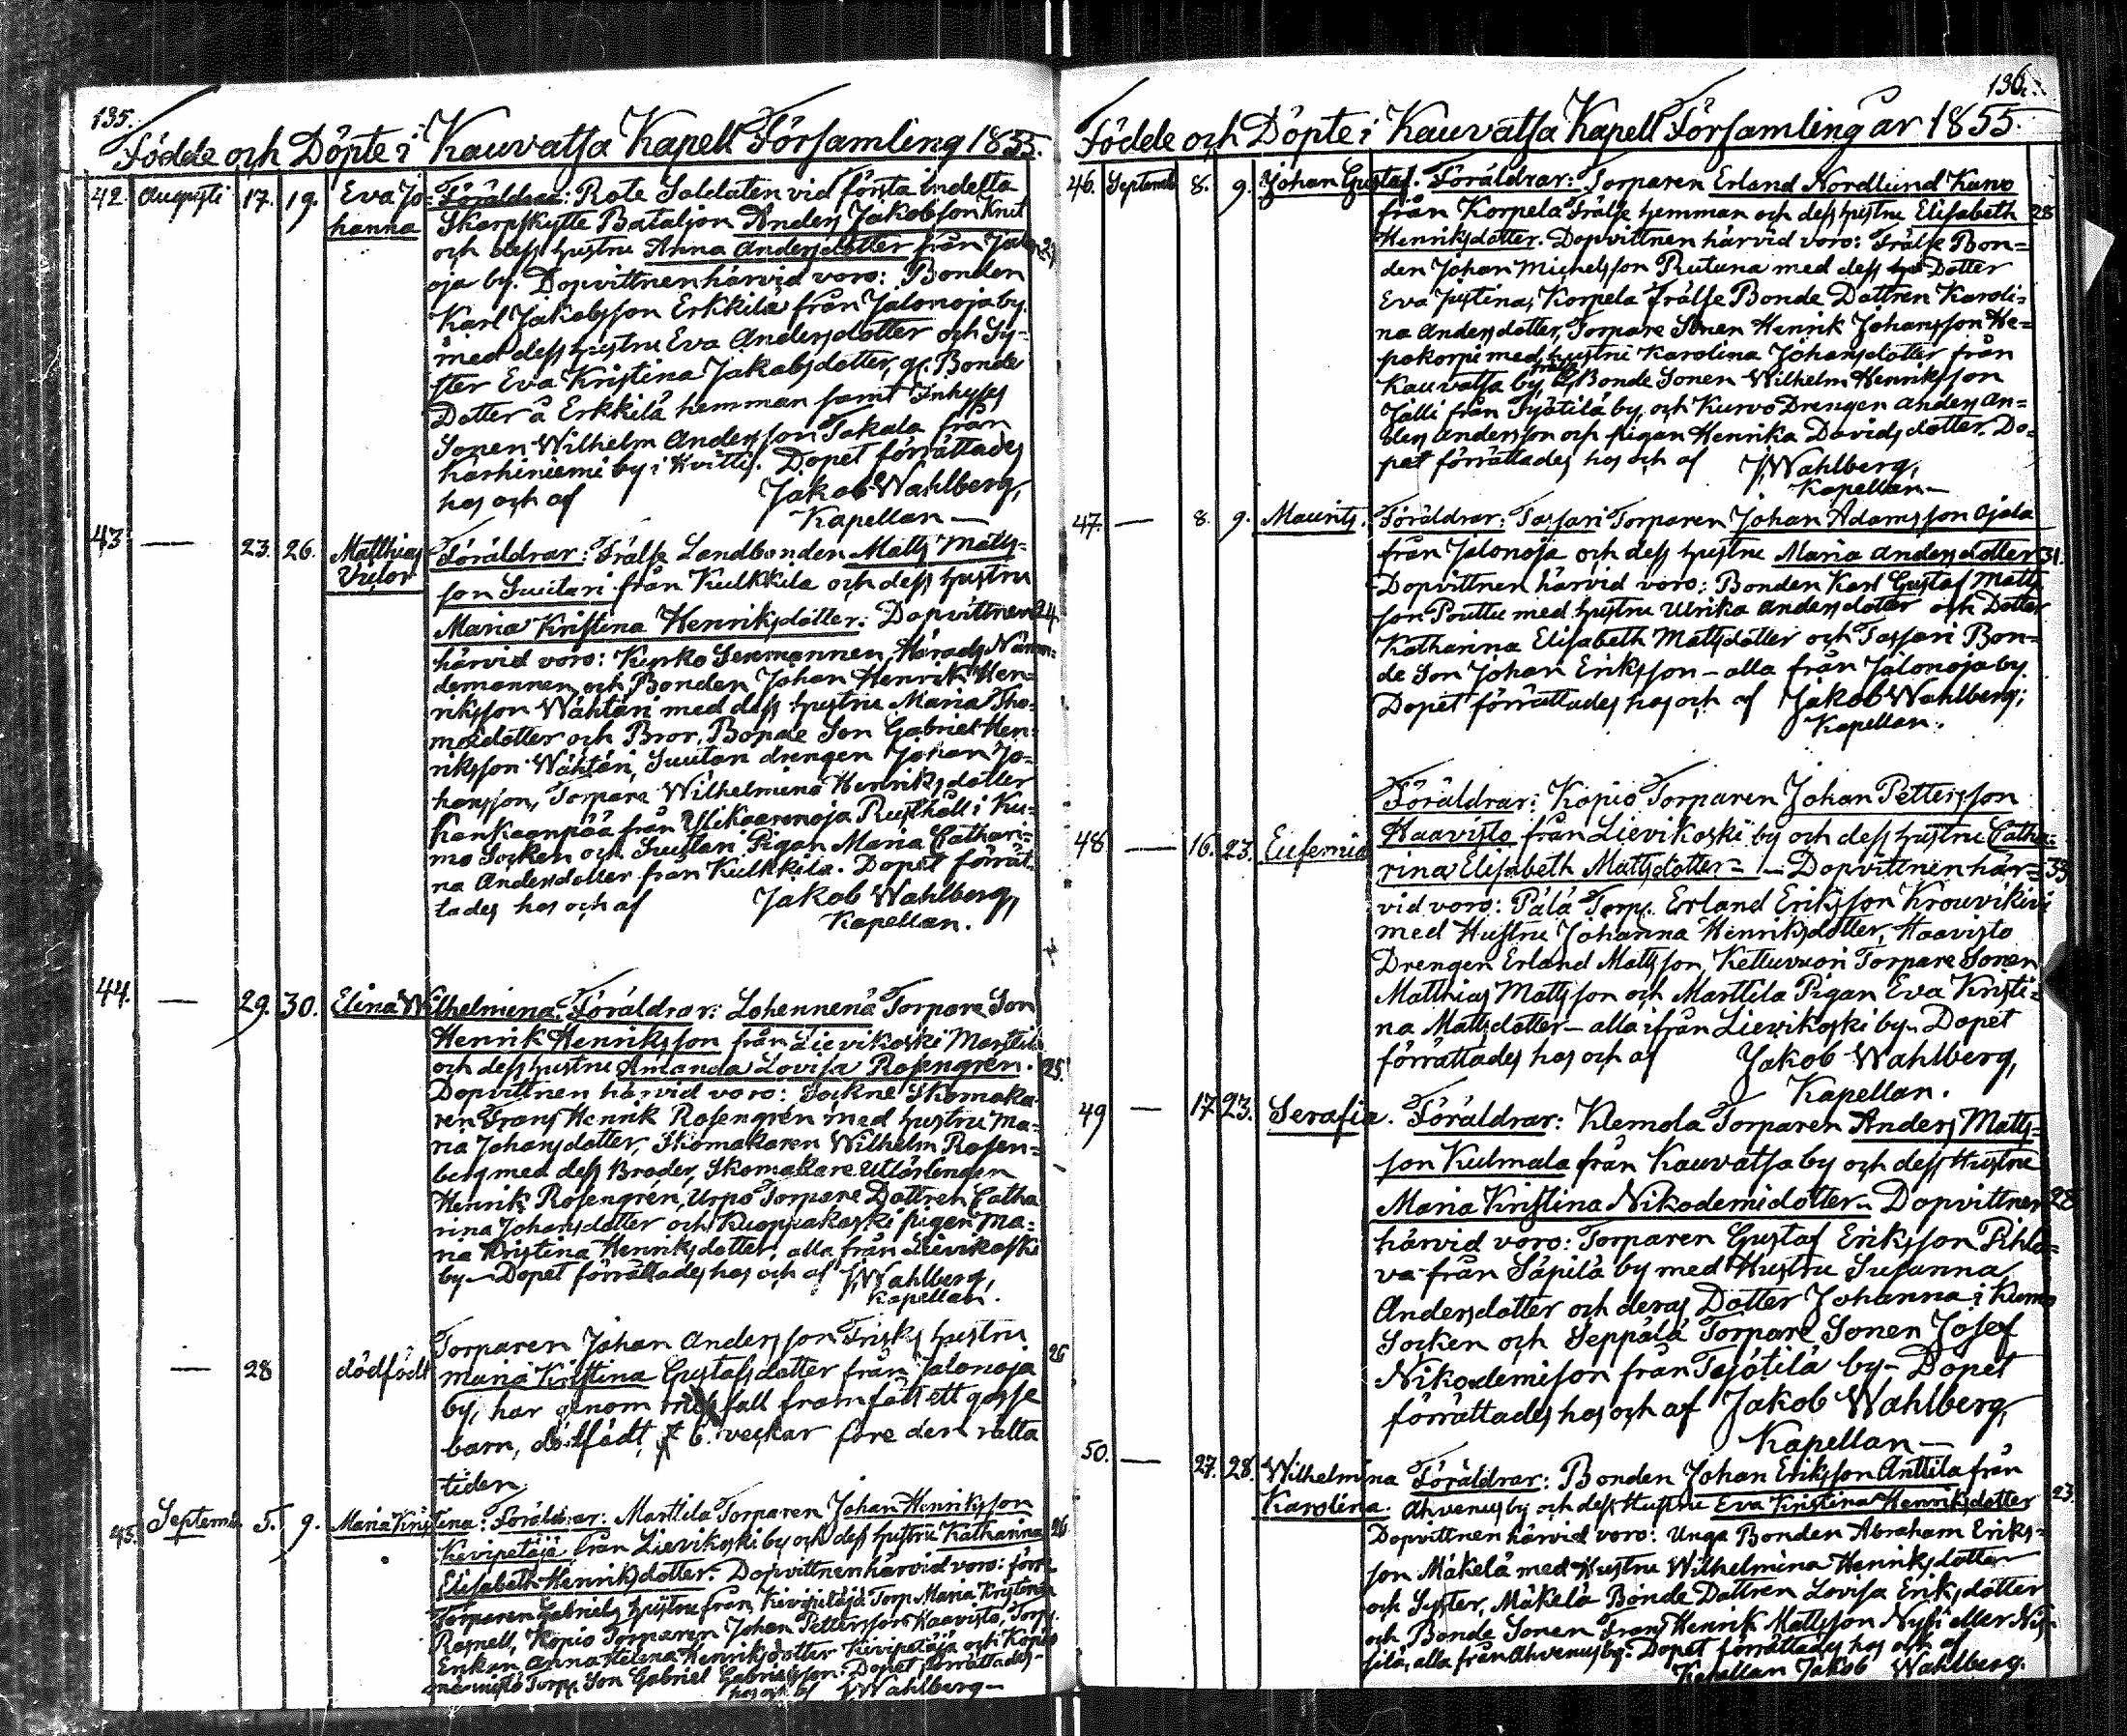 135.
Födde och Döpte i Kauvatsa Kapell Församling 1855.
42. Augusti 17. 19. Eva Jo= Föräldrar: Rote Soldaten vid första indelta
hanna Skarpskytte Bataljon Anders Jakobsson Knut
och dess hustru Anna Andersdotter från Jalon
oja by. Dopvittnen härvid voro: Bonden
Karl Jakobsson Erkkilä från Jalonoja by.
med dess hustru Eva Andersdotter och Sy=
ster Eva Kristina Jakobsdotter, gl. Bonde
Dotter å Erkkilä hemman samt Inhyses
Sonen Wilhelm Andersson Takala från
Karhiniemi by i Hvittis. Dopet förrättades
hos och af Jakob Wahlberg,
Kapellan —
43 — 23. 26. Matthias Föräldrar: Frälse Landbonden Matts Matts=
Victor son Suutari från Kulkkila och dess hustru
Maria Kristina Henriksdotter. Dopvittnen 24.
härvid voro: Kyrko Sexmannen, Härads Näm=
demannen och Bonden Johan Henrik Hen=
riksson Wähtäri med dess hustru Maria Tho=
masdotter och Bror, Bonde Son Gabriel Hen=
riksson Wähtäri, Suutari drengen Johan Jo=
hansson, Torpare Wilhelmina Henriksdotter
Kankaanpää från Ylikaarenoja Rusthåll i Ku=
mo Socken och Suutari Pigan Maria Cathari=
na Andersdotter från Kulkkila. Dopet förrät=
tades hos och af Jakob Wahlberg,
Kapellan.
44. — 29. 30. Elina Wilhelmina. Föräldrar: Lohennenä Torpare Son
Henrik Henriksson från Lievikoski Marttila
och dess hustru Amanda Lovisa Rosengrén. 25.
Dopvittnen härvid voro: Sockne Skomaka=
ren Frans Henrik Rosengrén med hustru Ma=
ria Johansdotter, Skomakaren Wilhelm Rosen=
berg med dess Broder, Skomakare Utlärlingen
Henrik Rosengrén, Urpo Torpare Dottren Catha
rina Johansdotter och Kuoppakoski pigan Ma=
ria Kristina Henriksdotter, alla från Lievikoski
by — Dopet förrättades hos och af J Wahlberg,
Kapellan.
— 28 dödfödt Torparen Johan Andersson Frisks hustru
Maria Kristina Gustafsdotter från Jalonoja 26
by, har genom fall framfödt ett gosse
barn, dödfödt, 6. veckar före den rätta
tiden
45. Septemb. 5. 9. Maria Kristina: Föräldrar: Marttila Torparen Johan Henriksson 26.
Kivipetäjä från Lievikoski by och dess hustru Katharina
Elisabeth Henriksdotter. Dopvittnen härvid voro: förre
Torparen Gabriels hustru från Kivipetäjä Torp Maria Kristina
Rosnell, Kopio Torparen Johan Pettersson Haavisto, Torp.
Enkan Anna Helena Henriksdotter Kivipetäjä och Kopio
Torp. Son Gabriel Gabrielsson. Dopet förrättades
hos och af J Wahlberg —
136.
Födde och Döpte i Kauvatsa Kapell Församling år 1855.
46. Septemb 8. 9. Johan Gustaf. Föräldrar: Torparen Erland Nordlund Kurvo
från Korpela Frälse hemman och dess hustru Elisabeth 28
Henriksdotter. Dopvittnen härvid voro: Frälse Bon=
den Johan Michelsson Rutuna med dess Dotter
Eva Justina, Korpela Frälse Bonde Dottren Karoli=
na Andersdotter, Torpare Sonen Henrik Johansson He=
pokorpi med hustru Karolina Johansdotter från
Kauvatsa by, frälse Bonde Sonen Wilhelm Henriksson
Jälli från Työtilä by, och Kurvo Drengen Anders An=
ders Andersson och pigan Henrika Davidsdotter. Do=
pet förrättades hos och af J Wahlberg,
Kapellan —
47. — 8. 9. Maurits. Föräldrar: Tassari Torparen Johan Adamsson Ojala
från Jalonoja och dess hustru Maria Andersdotter 31.
Dopvittnen härvid voro: Bonden Karl Gustaf Matts
son Pouttu med hustru Ulrika Andersdotter och Dotter
Katharina Elisabeth Mattsdotter och Tassari Bon=
de Son Johan Eriksson — alla från Jalonoja by.
Dopet förrättades hos och af Jakob Wahlberg;
Kapellan.
Föräldrar: Kopio Torparen Johan Pettersson
48 — 16. 23. Eufemia Haavisto från Lievikoski by och dess hustru Catha=
rina Elisabeth Mattsdotter — Dopvittnen här= 33
vid voro: Pälä Torp. Erland Eriksson Krouvikivi
med Hustru Johanna Henriksdotter, Haavisto
Drengen Erland Mattsson, Kettuvuori Torpare Sonen
Matthias Mattsson och Marttila Pigan Eva Kristi=
na Mattsdotter — alla ifrån Lievikoski by — Dopet
förrättades hos och af Jakob Wahlberg,
Kapellan.
49 — 17. 23. Serafia. Föräldrar: Klemola Torparen Anders Matts=
son Kulmala från Kauvatsa by och dess Hustru
Maria Kristina Nikodemidotter — Dopvittnen 28
härvid voro: Torparen Gustaf Eriksson Pihla=
va från Säpilä by med Hustru Susanna
Andersdotter och deras Dotter Johanna i Kumo
Socken och Seppälä Torpare Sonen Josef
Nikodemison från Työtilä by — Dopet
förrättades hos och af Jakob Wahlberg,
Kapellan —
50. — 27. 28. Wilhelmina Föräldrar: Bonden Johan Eriksson Anttila från
Karolina. Ahvenus by och dess Hustru Eva Kristina Henriksdotter 23.
Dopvittnen härvid voro: Unga Bonden Abraham Eriks=
son Mäkelä med Hustru Wilhelmina Henriksdotter
och Syster, Mäkelä Bonde Dottren Lovisa Eriksdotter
och Bonde Sonen Frans Henrik Mattsson Nysi eller Nis=
silä, alla från Ahvenus by. Dopet förrättades hos och af
Kapellan Jakob Wahlberg.